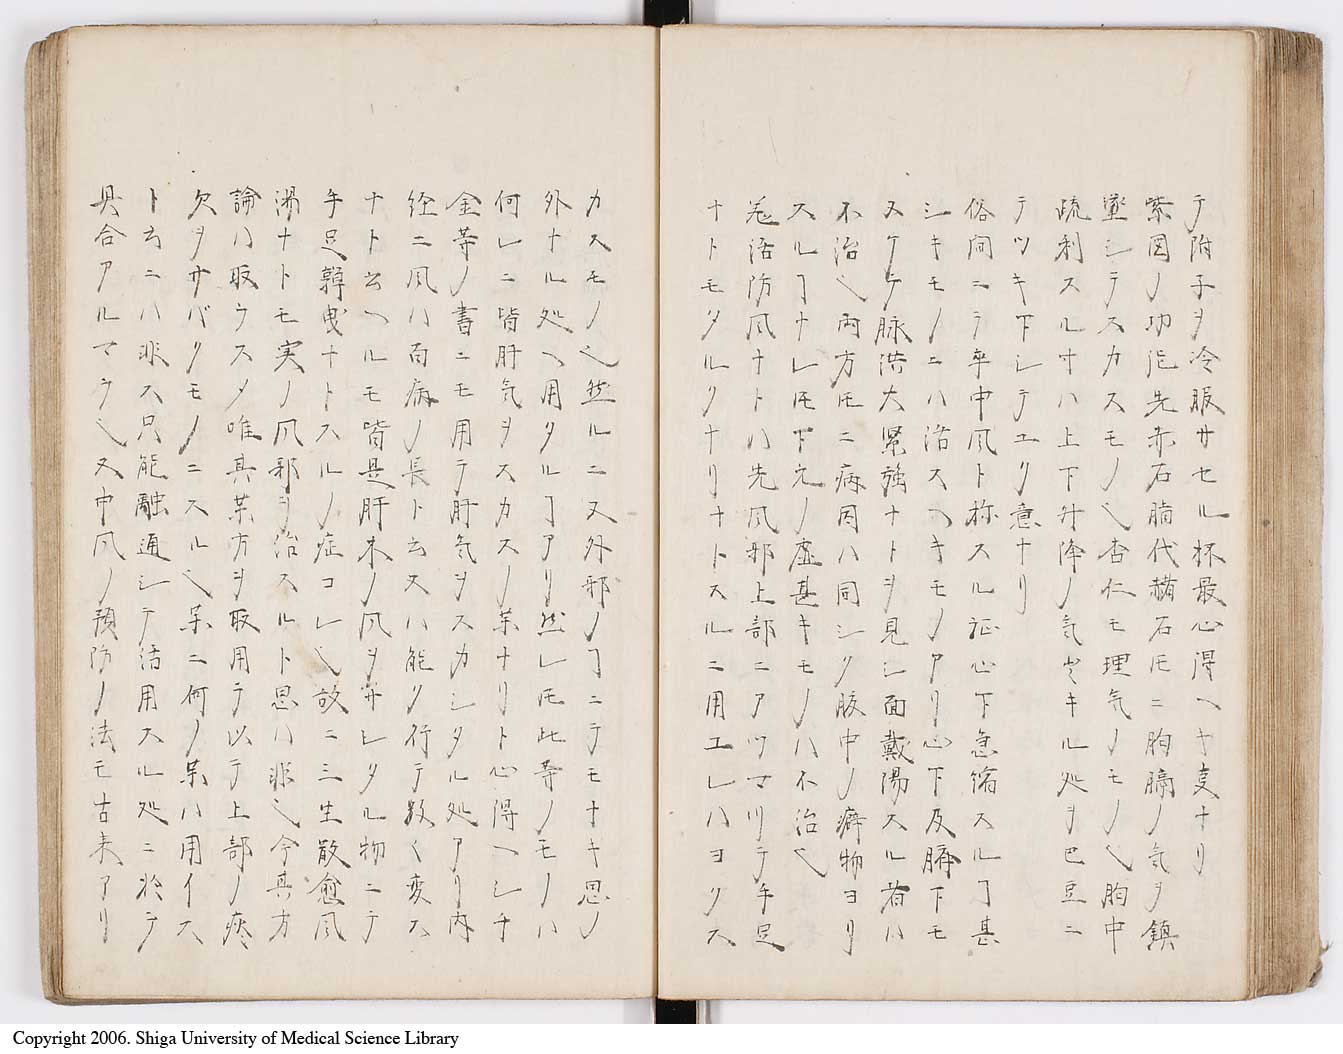 テ附子ヲ冷服サセル杯最心得ヘキ叓ナリ
紫図ノ功能先赤石脂代赭石𪜈ニ胸膈ノ気ヲ鎮
墜シテスカスモノ也杏仁モ理気ノモノ也胸中
疏利スル寸ハ上下升降ノ気キル処ヲ巴豆ニ
テツキ下シテユク意ナリ
俗間ニテ卒中風ト称スル証心下急縮スルヿ甚
シキモノニハ活スヘキモノアリ心下及臍下モ
ヌケテ脉洪大緊強ナトヲ見シ面戴陽スル者ハ
不治也両方𪜈ニ病因ハ同シク腹中ノ癖物ヨリ
スルヿナレ𪜈下元ノ虚甚キモノハ不治也
羌活防風ナトハ先風邪上部ニアツマリテ手足
ナトモタルクナリナトスルニ用エレハヨクス
カスモノ也然ルニ又外邪ノヿニテモナキ思ノ
外ナル処ヘ用タルヿアリ然レ𪜈此等ノモノハ
何レニ皆肝気ヲスカスノ薬ナリト心得ヘシ千
金等ノ書ニモ用テ肝気ヲスカシタル処アリ内
経ニ風ハ百病ノ長ト云又ハ能ク行テ数〱変ス
ナト云ヘルモ皆是肝木ノ風ヲサシタル物ニテ
手足嚲曳ナトスルノ症コレ也故ニ三生散愈風
湯ナトモ実ノ風邪ヲ治スルト思ハ非也今其方
論ハ取ウスメ唯其薬方ヲ取用テ以テ上部ノ痰
欠ヲサバクモノニスル也薬ニ何ノ薬ハ用イス
ト云ニハ非ス只能融通シテ活用スル処ニ於テ
具合アルマウ也又中風ノ預防ノ法モ古来アリ
Copyright 2006. Shiga University of Medical Science Library